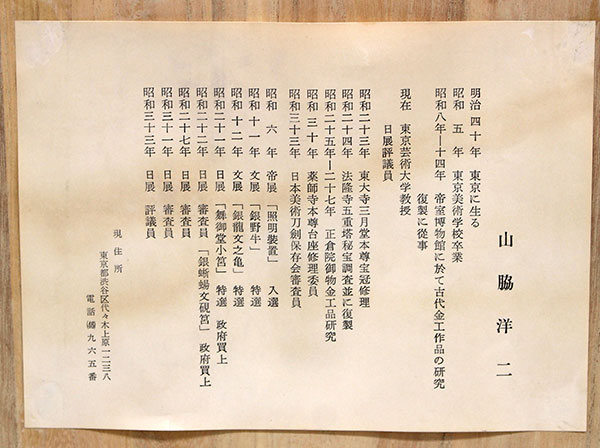 山脇洋二
明治四十年 東京に生る
昭和五年 東京美術学校卒業
昭和八年―十四年 帝室博物館に於て古代金工作品の研究
復製に従事
現在 東京芸術大学教授
日展評議員
昭和二十三年 東大寺三月堂本尊宝冠修理
昭和二十四年 法隆寺五重塔秘宝調査並に復製
昭和二十五年―二十七年 正倉院御物金工品研究
昭和三十年 薬師寺本尊台座修理委員
昭和三十三年 日本美術刀剣保存会審査員
昭和六年 帝展 「照明装置」 入選
昭和十一年 文展 「銀野牛」 特選
昭和十二年 文展 「銀龍文之亀」 特選
昭和二十一年 日展 「舞御堂小筥」 特選 政府買上
昭和二十二年 日展 審査員 「銀蜥蜴文硯筥」 政府買上
昭和二十七年 日展 審査員
昭和三十一年 日展 審査員
昭和三十三年 日展 評議員
現住所
東京都渋谷区代々木上原一二三八
電話 九六五番